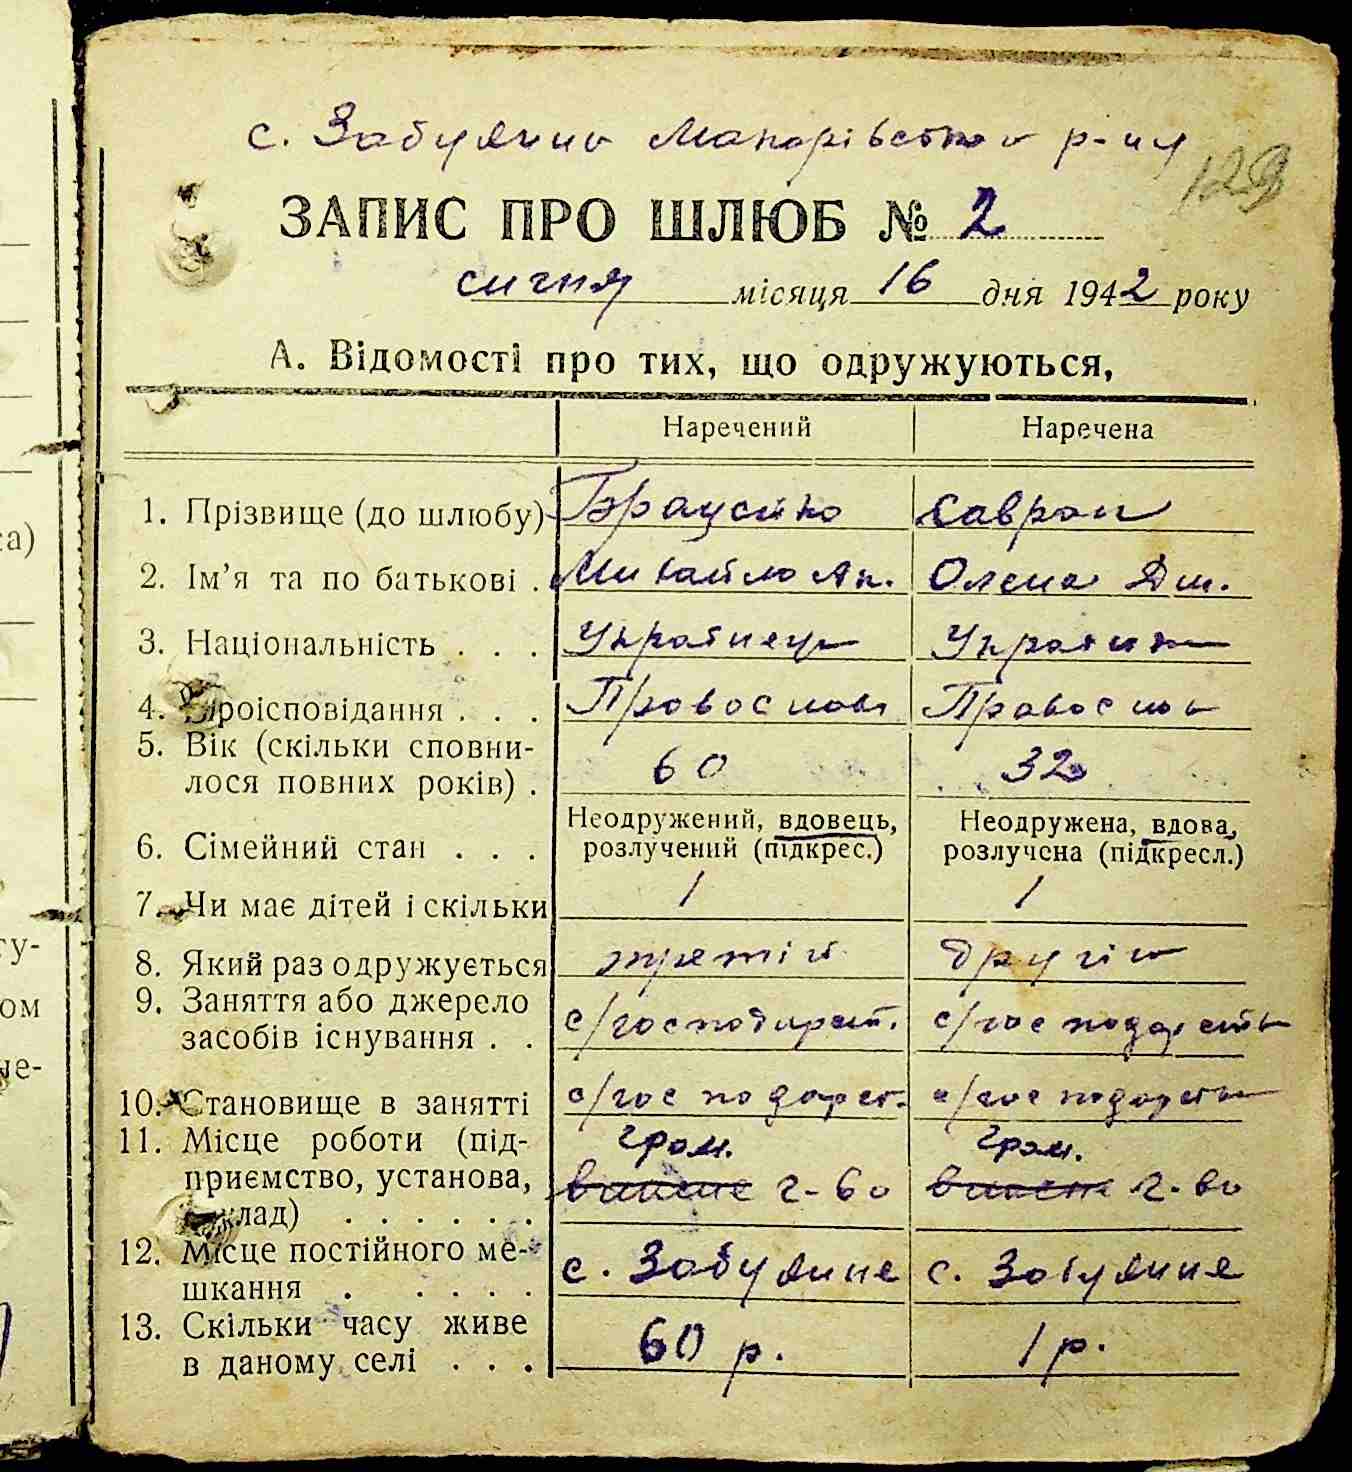 с. Забуяння Макарівського р-ну
129
ЗАПИС ПРО ШЛЮБ № 2
січня місяця 16 дня 1942 року
А. Відомості про тих, що одружуються,
Наречений Наречена
1. Прізвище (до шлюбу) Саврон
2. Ім'я та по батькові . Михайло Ан. Олена Дм.
3. Національність . . . Українець Українк
4. Віроісповідання . . . Православ Православ
5. Вік (скільки сповни-
лося повних років) . 60 32
Неодружений, вдовець, Неодружена, вдова,
6. Сімейний стан . . . розлучений (підкрес.) розлучена (підкресл.)
7. Чи має дітей і скільки 1 1
8. Який раз одружується третій другий
9. Заняття або джерело
засобів існування . . с/господарст. с/господарств
10. Становище в занятті с/господарст. с/господарств
11. Місце роботи (під- гром. гром.
приємство, установа, г-во г-во
заклад) . . . . . .
12. Місце постійного ме-
шкання . . . . . с. Забуяння с. Забуяння
13. Скільки часу живе
в даному селі . . . 60 р. 1 р.
са)
гу-
ом
не-